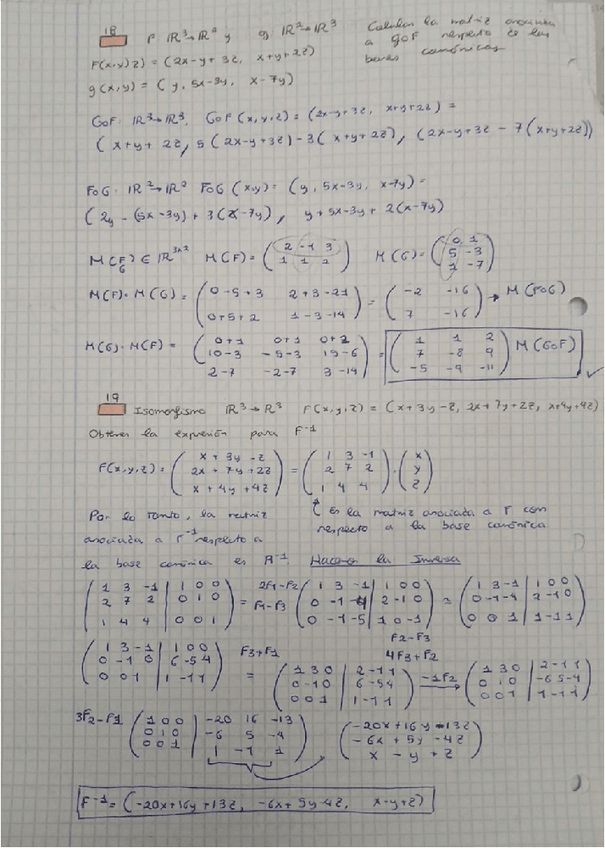 18 F: ℝ³→ℝ² y g: ℝ²→ℝ³ Calcular la matriz asociada
a GoF respecto de las
bases canónicas
F(x,y,z) = (2x-y+3z, x+y+2z)
g(x,y) = (y, 5x-3y, x-7y)
GoF: ℝ³→ℝ³. GoF(x,y,z) = (2x-y+3z, x+y+2z) =
(x+y+2z, 5(2x-y+3z)-3(x+y+2z), (2x-y+3z-7(x+y+2z))
FoG: ℝ²→ℝ² FoG(x,y) = (y, 5x-3y, x-7y) =
(2y-(5x-3y)+3(x-7y), y+5x-3y+2(x-7y)
M(F) = (2 -1 3
1 1 2) M(G) = (0 1
5 -3
1 -7)
M(F)·M(G) = (0-5+3 2+3-21
0+5+2 1-3-14) = (-2 -16
7 -16) → M(FoG)
M(G)·M(F) = (0+1 0+1 0+2
10-3 -5-3 15-6
2-7 -2-7 3-14) = (1 1 2
7 -8 9
-5 -9 -11) M(GoF)
19 Isomorfismo ℝ³→ℝ³ F(x,y,z) = (x+3y-z, 2x+7y+2z, x+4y+4z)
Obtener la expresión para F⁻¹
F(x,y,z) = (x+3y-z
2x+7y+2z
x+4y+4z) = (1 3 -1
2 7 2
1 4 4)·(x
y
z)
Por lo tanto, la matriz
asociada a F⁻¹ respecto a
la base canónica es A⁻¹. Hacemos la Inversa
Es la matriz asociada a F con
respecto a la base canónica
(1 3 -1 | 1 0 0
2 7 2 | 0 1 0
1 4 4 | 0 0 1) = 2F1-F2
F1-F3 (1 3 -1 | 1 0 0
0 -1 -4 | 2 -1 0
0 -1 -5 | 1 0 -1) = (1 3 -1 | 1 0 0
0 -1 -4 | 2 -1 0
0 0 1 | 1 -1 1)
F2-F3
4F3+F2
(1 3 -1 | 1 0 0
0 -1 0 | 6 -5 4
0 0 1 | 1 -1 1) F3+F1 = (1 3 0 | 2 -1 1
0 -1 0 | 6 -5 4
0 0 1 | 1 -1 1) -1F2 → (1 3 0 | 2 -1 1
0 1 0 | -6 5 -4
0 0 1 | 1 -1 1)
3F2-F1 (1 0 0 | -20 16 -13
0 1 0 | -6 5 -4
0 0 1 | 1 -1 1) (-20x+16y-13z
-6x+5y-4z
x-y+z)
F⁻¹ = (-20x+16y+13z, -6x+5y-4z, x-y+z)